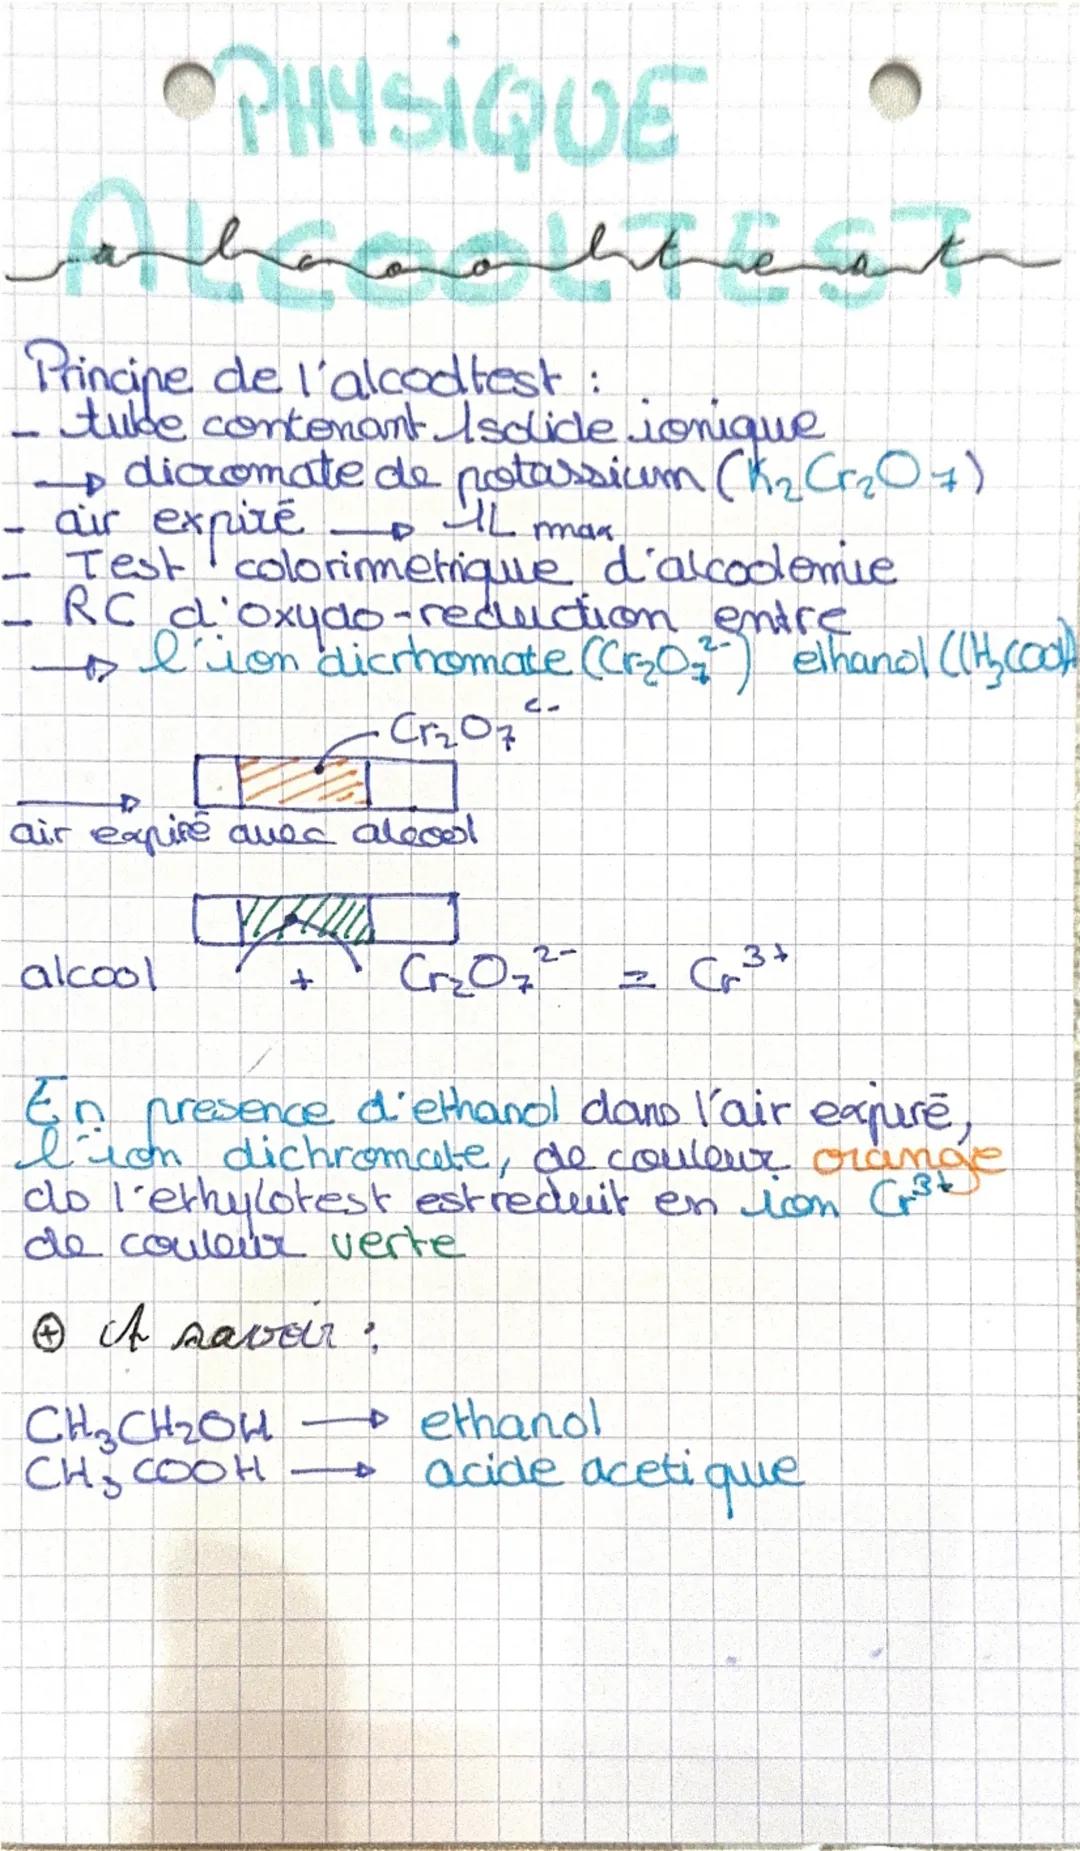 PHYSIQUE
ALCOOLTEST
alcooltest
Principe de l'alcooltest :
- tube contenant 1 solide ionique
→ dicromate de potassium (K₂Cr₂O₇)
- air expiré → 1L max
- Test colorimetrique d'alcoolemie
- RC d'oxydo-reduction entre
→ l'ion dicrhomate (Cr₂O₇²⁻) ethanol (CH₃COOH)
Cr₂O₇²⁻
air expiré avec alcool
alcool + Cr₂O₇²⁻ = Cr³⁺
En presence d'ethanol dans l'air expiré,
l'ion dichromate, de couleur orange
do l'ethylotest est reduit en ion Cr³⁺
de couleur verte
⊕ A savoir :
CH₃CH₂OH → ethanol
CH₃COOH → acide acetique